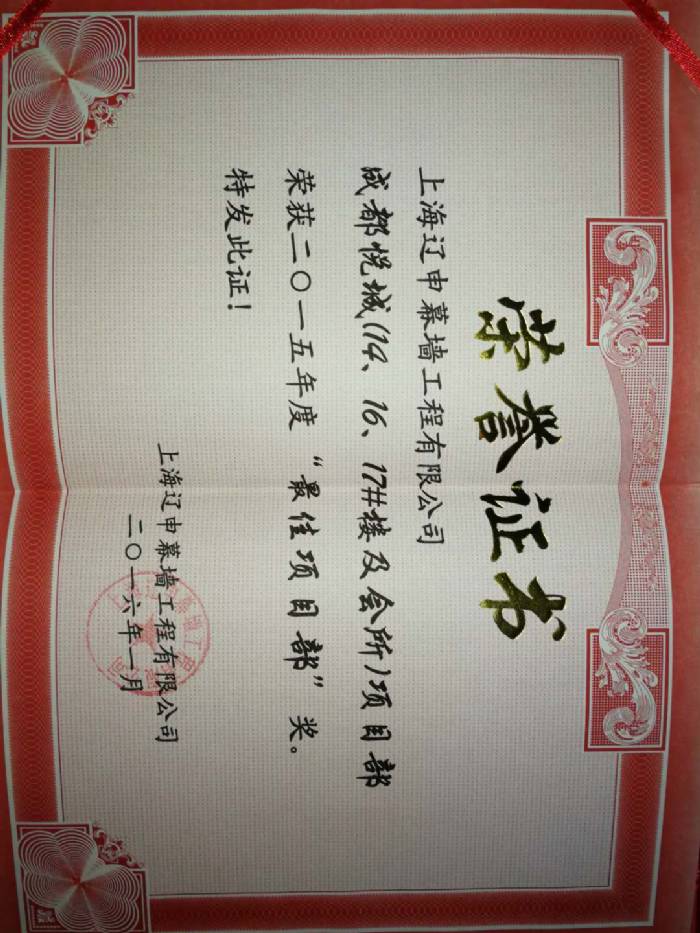 荣誉证书
上海辽申幕墙工程有限公司
成都悦城(14、16、17#楼及会所)项目部
荣获二〇一五年度“最佳项目部”奖。
特发此证!
上海辽申幕墙工程有限公司
二〇一六年一月